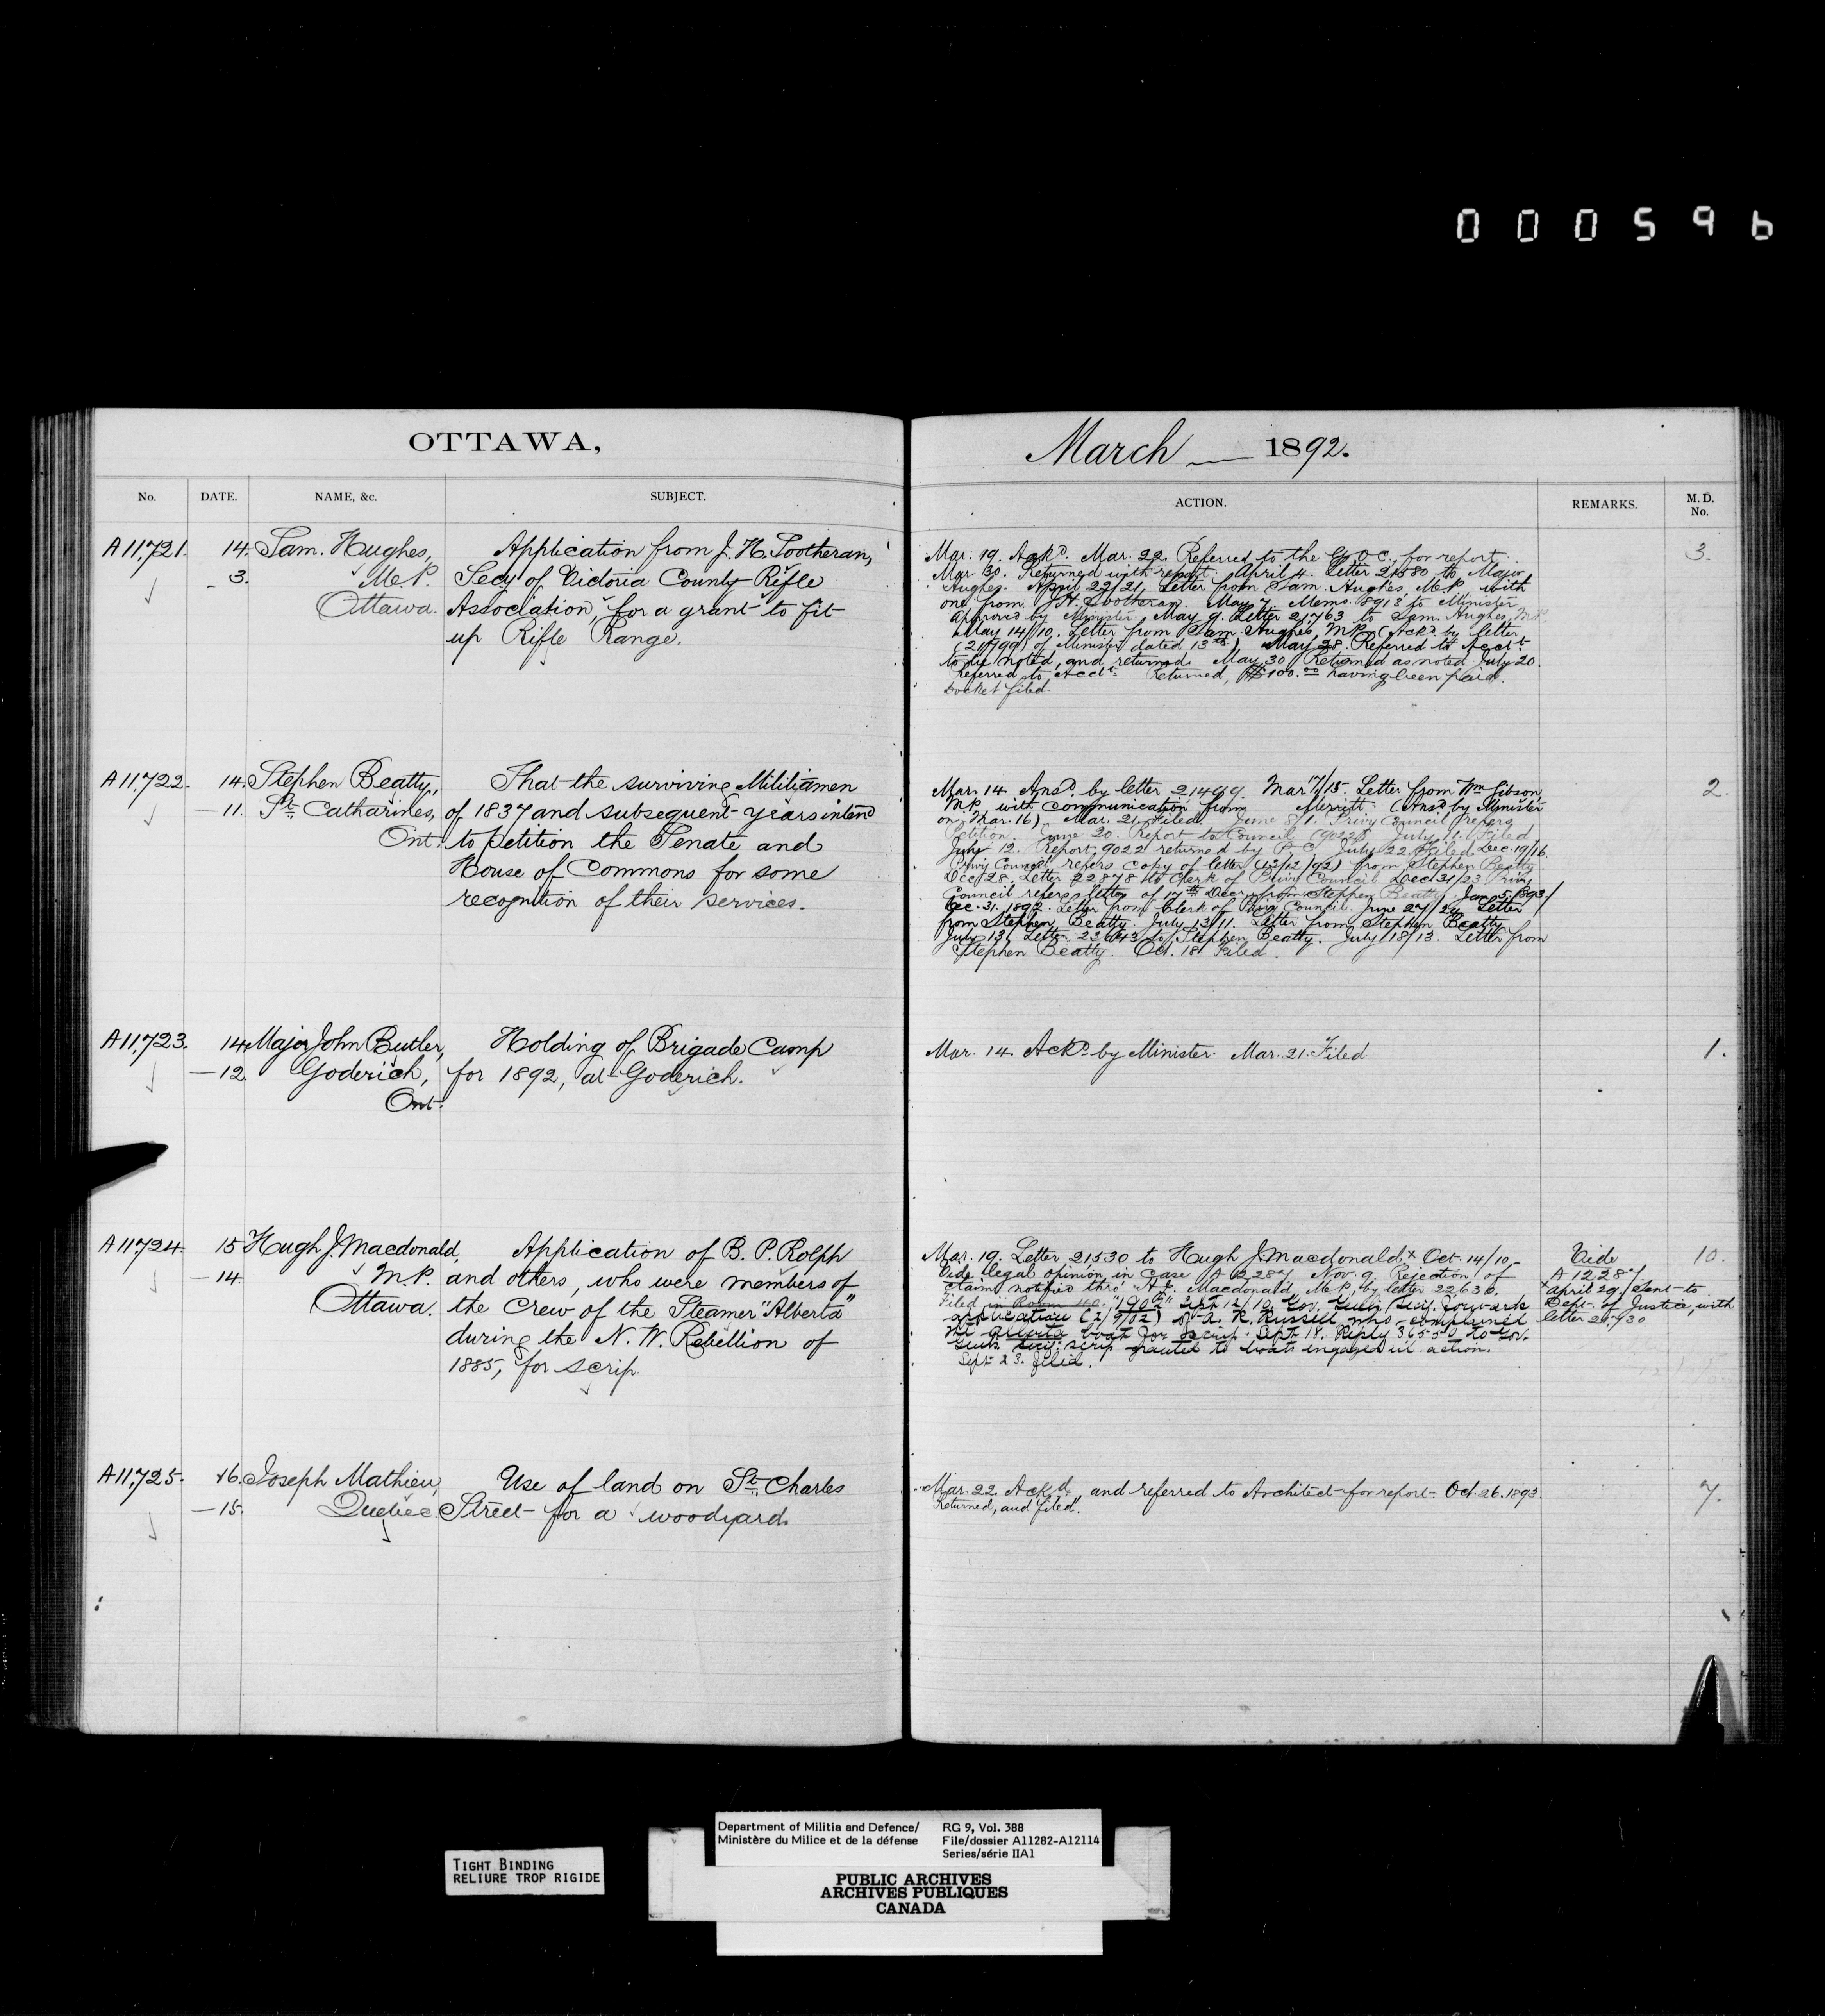 000596
OTTAWA,
March 1892.
No. DATE. NAME, &c. SUBJECT.
ACTION. REMARKS. M.D. No.
A11,721. 14. Sam. Hughes, Application from J. H. Sootheran,
3. M.P. Secy of Victoria County Rifle
Ottawa. Association, for a grant to fit
up Rifle Range.
Mar. 19. Ackd. Mar. 22. Referred to the G.O.C. for report. 3.
Mar 30. Returned with report. April 4. Letter 21580 to Major
Hughes. April 22/21. Letter from Sam. Hughes M.P. with
one from J. H. Sootheran. May 7. Memo. 8913 to Minister
Approved by Minister. May 9. Letter 21763 to Sam. Hughes, M.P.
May 14/10. Letter from Sam. Hughes, M.P. (Ackd. by letter
(21799) of Minister dated 13th) May 28. Referred to Acct.
to be noted, and returned. May 30 Returned as noted July 20.
Referred to Acct. Returned, $100.00 having been paid.
Docket filed.
A11,722. 14. Stephen Beatty, That the surviving Militiamen
11. St. Catharines, of 1837 and subsequent years intend
Ont. to petition the Senate and
House of Commons for some
recognition of their services.
Mar. 14. Ansd. by letter 21499. Mar 17/15. Letter from Wm Gibson, 2.
M.P. with communication from Merritt. (Ansd by Minister
on Mar. 16). Mar. 21. Filed. June 8/1. Privy Council refers
Petition. June 20. Report to Council (9022). July 11. Filed
July 12. Report 9022 returned by P.C. July 22. Filed. Dec. 19/16.
Privy Council refers copy of letter (12/12/92) from Stephen Beatty.
Dec. 28. Letter 22878 to Clerk of Privy Council. Dec. 31/23 Privy
Council refers letter of 17th Decr. from Stephen Beatty. Jan. 5/1893/
Dec. 31. 1892. Letter from Clerk of Privy Council. June 27/24 Letter
from Stephen Beatty. July 13/11. Letter from Stephen Beatty.
July 13. Letter 23643 to Stephen Beatty. July 18/13. Letter from
Stephen Beatty. Oct. 18 Filed.
A11,723. 14. Major John Butler, Holding of Brigade Camp
12. Goderich, for 1892, at Goderich.
Ont.
Mar. 14. Ackd by Minister. Mar. 21. Filed 1.
A11,724. 15 Hugh J. Macdonald, Application of B. P. Rolph
14. M.P. and others, who were members of
Ottawa. the crew of the Steamer "Alberta"
during the N. W. Rebellion of
1885, for scrip.
Mar. 19. Letter 21530 to Hugh J. Macdonald.x Oct. 14/10 Vide 10.
Vide legal opinion in case A 12287 Nov. 9 Rejection of A 12287
claim notified thro' H. J. Macdonald, M.P., by letter 22636. x April 29. Sent to
Filed in Room "1902" Sept 12/10. Gov. Genl's Secy. forwards Dept. of Justice, with
application (2/9/02) of A. R. Russell who complained letter 21,730
the Alberta boat for scrip. Sept. 18. Reply 36550 to Gov.
Genl's Secy: scrip granted to boats engaged in action.
Sept 23. Filed.
A11,725. 16. Joseph Mathieu, Use of land on St. Charles
15. Quebec. Street for a woodyard.
Mar. 22. Ackd., and referred to Architect for report. Oct. 26. 1893. 7.
Returned, and filed.
TIGHT BINDING
RELIURE TROP RIGIDE
Department of Militia and Defence/ RG 9, Vol. 388
Ministère du Milice et de la défense File/dossier A11282-A12114
Series/série IIA1
PUBLIC ARCHIVES
ARCHIVES PUBLIQUES
CANADA